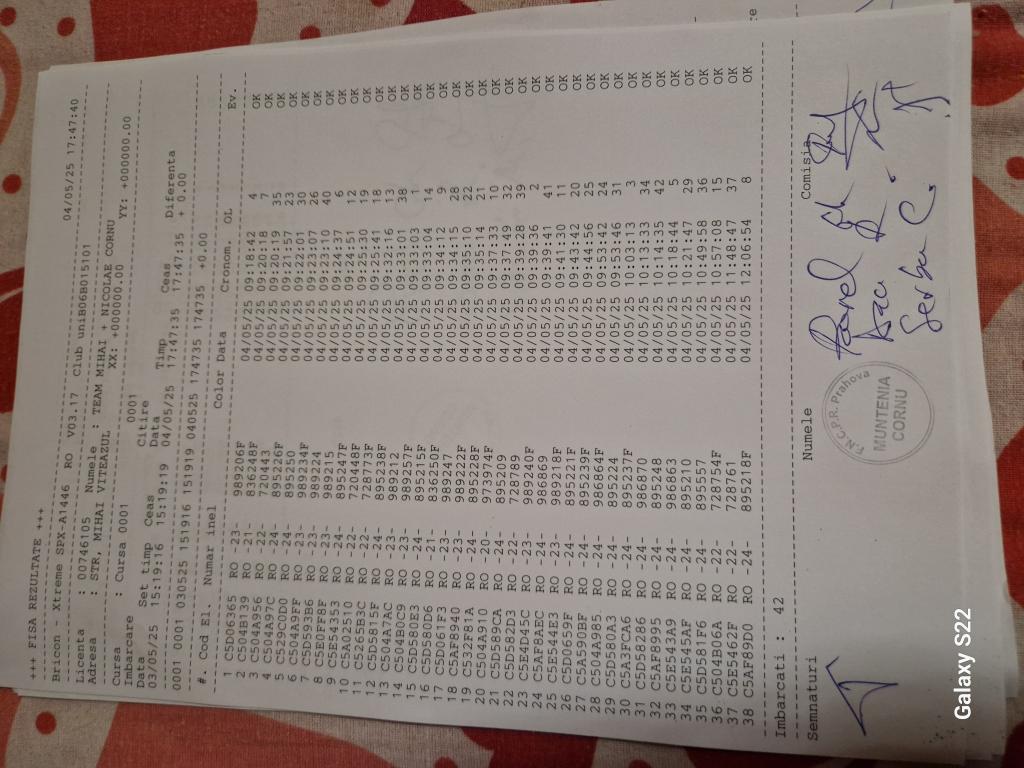 +++ FISA REZULTATE +++
Bricon - Xtreme SPX-A1446 RO V03.17 Club uniB06B015101 04/05/25 17:47:40
Licenta : 00746105 Numele : TEAM MIHAI + NICOLAE CORNU
Adresa : STR, MIHAI VITEAZUL XX: +000000.00 YY: +000000.00
Cursa : Cursa 0001
Imbarcare 0001
Data Set timp Ceas Citire Data Timp Ceas Diferenta
03/05/25 15:19:16 15:19:19 04/05/25 17:47:35 17:47:35 + 0.00
0001 0001 030525 151916 151919 040525 174735 174735 +0.00
#. Cod El. Numar inel Color Data Cronom. OL Ev.
1 C5D06365 RO -23- 989206F 04/05/25 09:18:42 4 OK
2 C504B139 RO -21- 836248F 04/05/25 09:20:18 7 OK
3 C504A956 RO -22- 720443 04/05/25 09:20:19 35 OK
4 C504A97C RO -24- 895226F 04/05/25 09:21:57 23 OK
5 C5A9C0D0 RO -24- 895250 04/05/25 09:22:01 30 OK
6 C504A9FF RO -23- 989234F 04/05/25 09:23:07 26 OK
7 C5D593B6 RO -23- 989224 04/05/25 09:23:10 40 OK
8 C5E0FFBF RO -23- 989215 04/05/25 09:24:37 6 OK
9 C5E54353 RO -24- 895247F 04/05/25 09:24:51 12 OK
10 C5A02510 RO -22- 720448F 04/05/25 09:25:30 19 OK
11 C5265B3C RO -22- 728773F 04/05/25 09:25:41 18 OK
12 C5D5815F RO -24- 895238F 04/05/25 09:32:16 13 OK
13 C504A7AC RO -23- 989212 04/05/25 09:33:01 38 OK
14 C504B0C9 RO -23- 989257F 04/05/25 09:33:03 1 OK
15 C5D580E3 RO -24- 895215F 04/05/25 09:33:04 14 OK
16 C5D580D6 RO -21- 836250F 04/05/25 09:34:12 9 OK
17 C5D061F3 RO -23- 989247 04/05/25 09:34:15 28 OK
18 C5AF8940 RO -23- 989222F 04/05/25 09:35:10 22 OK
19 C532F81A RO -24- 895228F 04/05/25 09:35:14 21 OK
20 C504A910 RO -20- 973974F 04/05/25 09:37:33 10 OK
21 C5D589CA RO -24- 895209 04/05/25 09:37:49 32 OK
22 C5D582D3 RO -22- 728789 04/05/25 09:39:28 39 OK
23 C5E4D45C RO -23- 989240F 04/05/25 09:39:36 2 OK
24 C5AFBAEC RO -24- 986869 04/05/25 09:39:41 41 OK
25 C5E544E3 RO -23- 989218F 04/05/25 09:41:30 11 OK
26 C5D0659F RO -24- 895221F 04/05/25 09:43:42 20 OK
27 C5A590BF RO -24- 895239F 04/05/25 09:44:56 25 OK
28 C504A985 RO -24- 986864F 04/05/25 09:53:42 24 OK
29 C5D580A3 RO -24- 895224 04/05/25 09:53:46 31 OK
30 C5A3FCA6 RO -24- 895237F 04/05/25 10:03:13 3 OK
31 C5D58286 RO -24- 986870 04/05/25 10:13:33 34 OK
32 C5AF8995 RO -24- 895248 04/05/25 10:14:35 42 OK
33 C5E543A9 RO -24- 986863 04/05/25 10:18:44 5 OK
34 C5E545AF RO -24- 895210 04/05/25 10:21:47 29 OK
35 C5D581F6 RO -24- 895557 04/05/25 10:49:58 36 OK
36 C504B06A RO -22- 728754F 04/05/25 10:57:08 15 OK
37 C5E5462F RO -22- 728761 04/05/25 11:48:47 37 OK
38 C5AF89D0 RO -24- 895218F 04/05/25 12:06:54 8 OK
Imbarcati : 42
Semnaturi Numele Comisia
Pavel
Serban C.
F.N.C.P.R. Prahova
MUNTENIA
CORNU
Galaxy S22